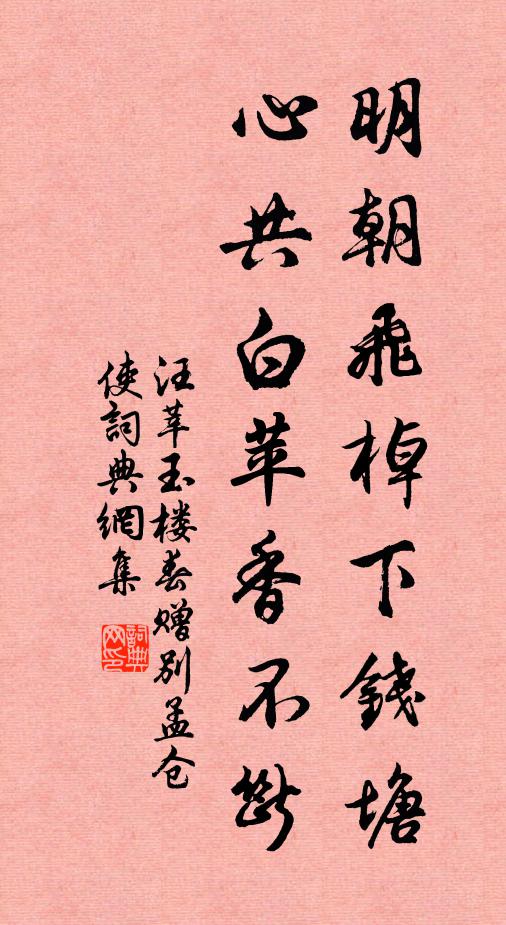 明朝飛棹下錢塘
心共白苹香不斷
汪莘玉楼春赠别孟仓
使詞典網集
詞典网印